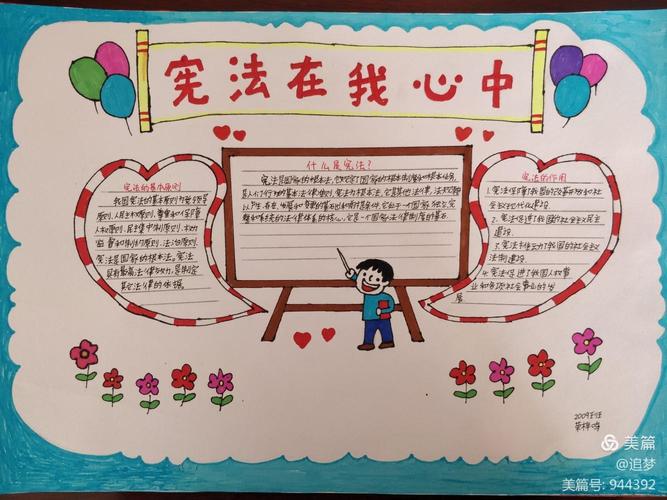 宪法在我心中
宪法的基本原则
我国宪法的基本原则为党的领导
原则、人民主权原则、尊重和保障
人权原则、民主集中制原则、权力
监督和制约原则、法治原则。
宪法是国家的根本法,宪法
具有最高法律效力,是制定
其它法律的依据。
什么是宪法?
宪法是国家的根本法,它规定了国家的根本制度和根本任务,
是人们行为的基本法律准则,宪法为根本法,它是其他法律、法规
以产生、存在、发展和
它是一个国家法律制度的基石
宪法的作用
1.宪法保障了我国的改革开放和社
会主义现代化建设
2.宪法促进了我国的社会主义民主
建设
3.宪法
我国的社会主义
法制建设
4.宪法促进了我国人权事
业和各项社会事业的发
展
美篇
@追梦
美篇号: 944392